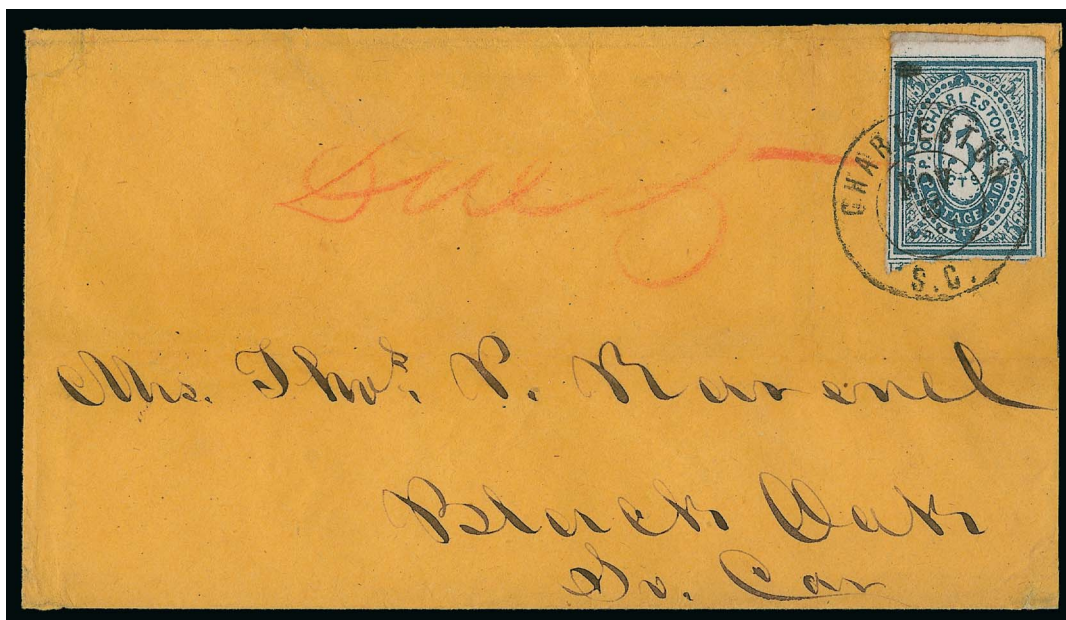 5 5
P.O. CHARLESTON S.C.
5
CTS
POSTAGE PAID
5 5
CHARLESTON
NOV
S.C.
Due 5
Mrs. Thos. P. Ravenel
Black Oak
So. Car